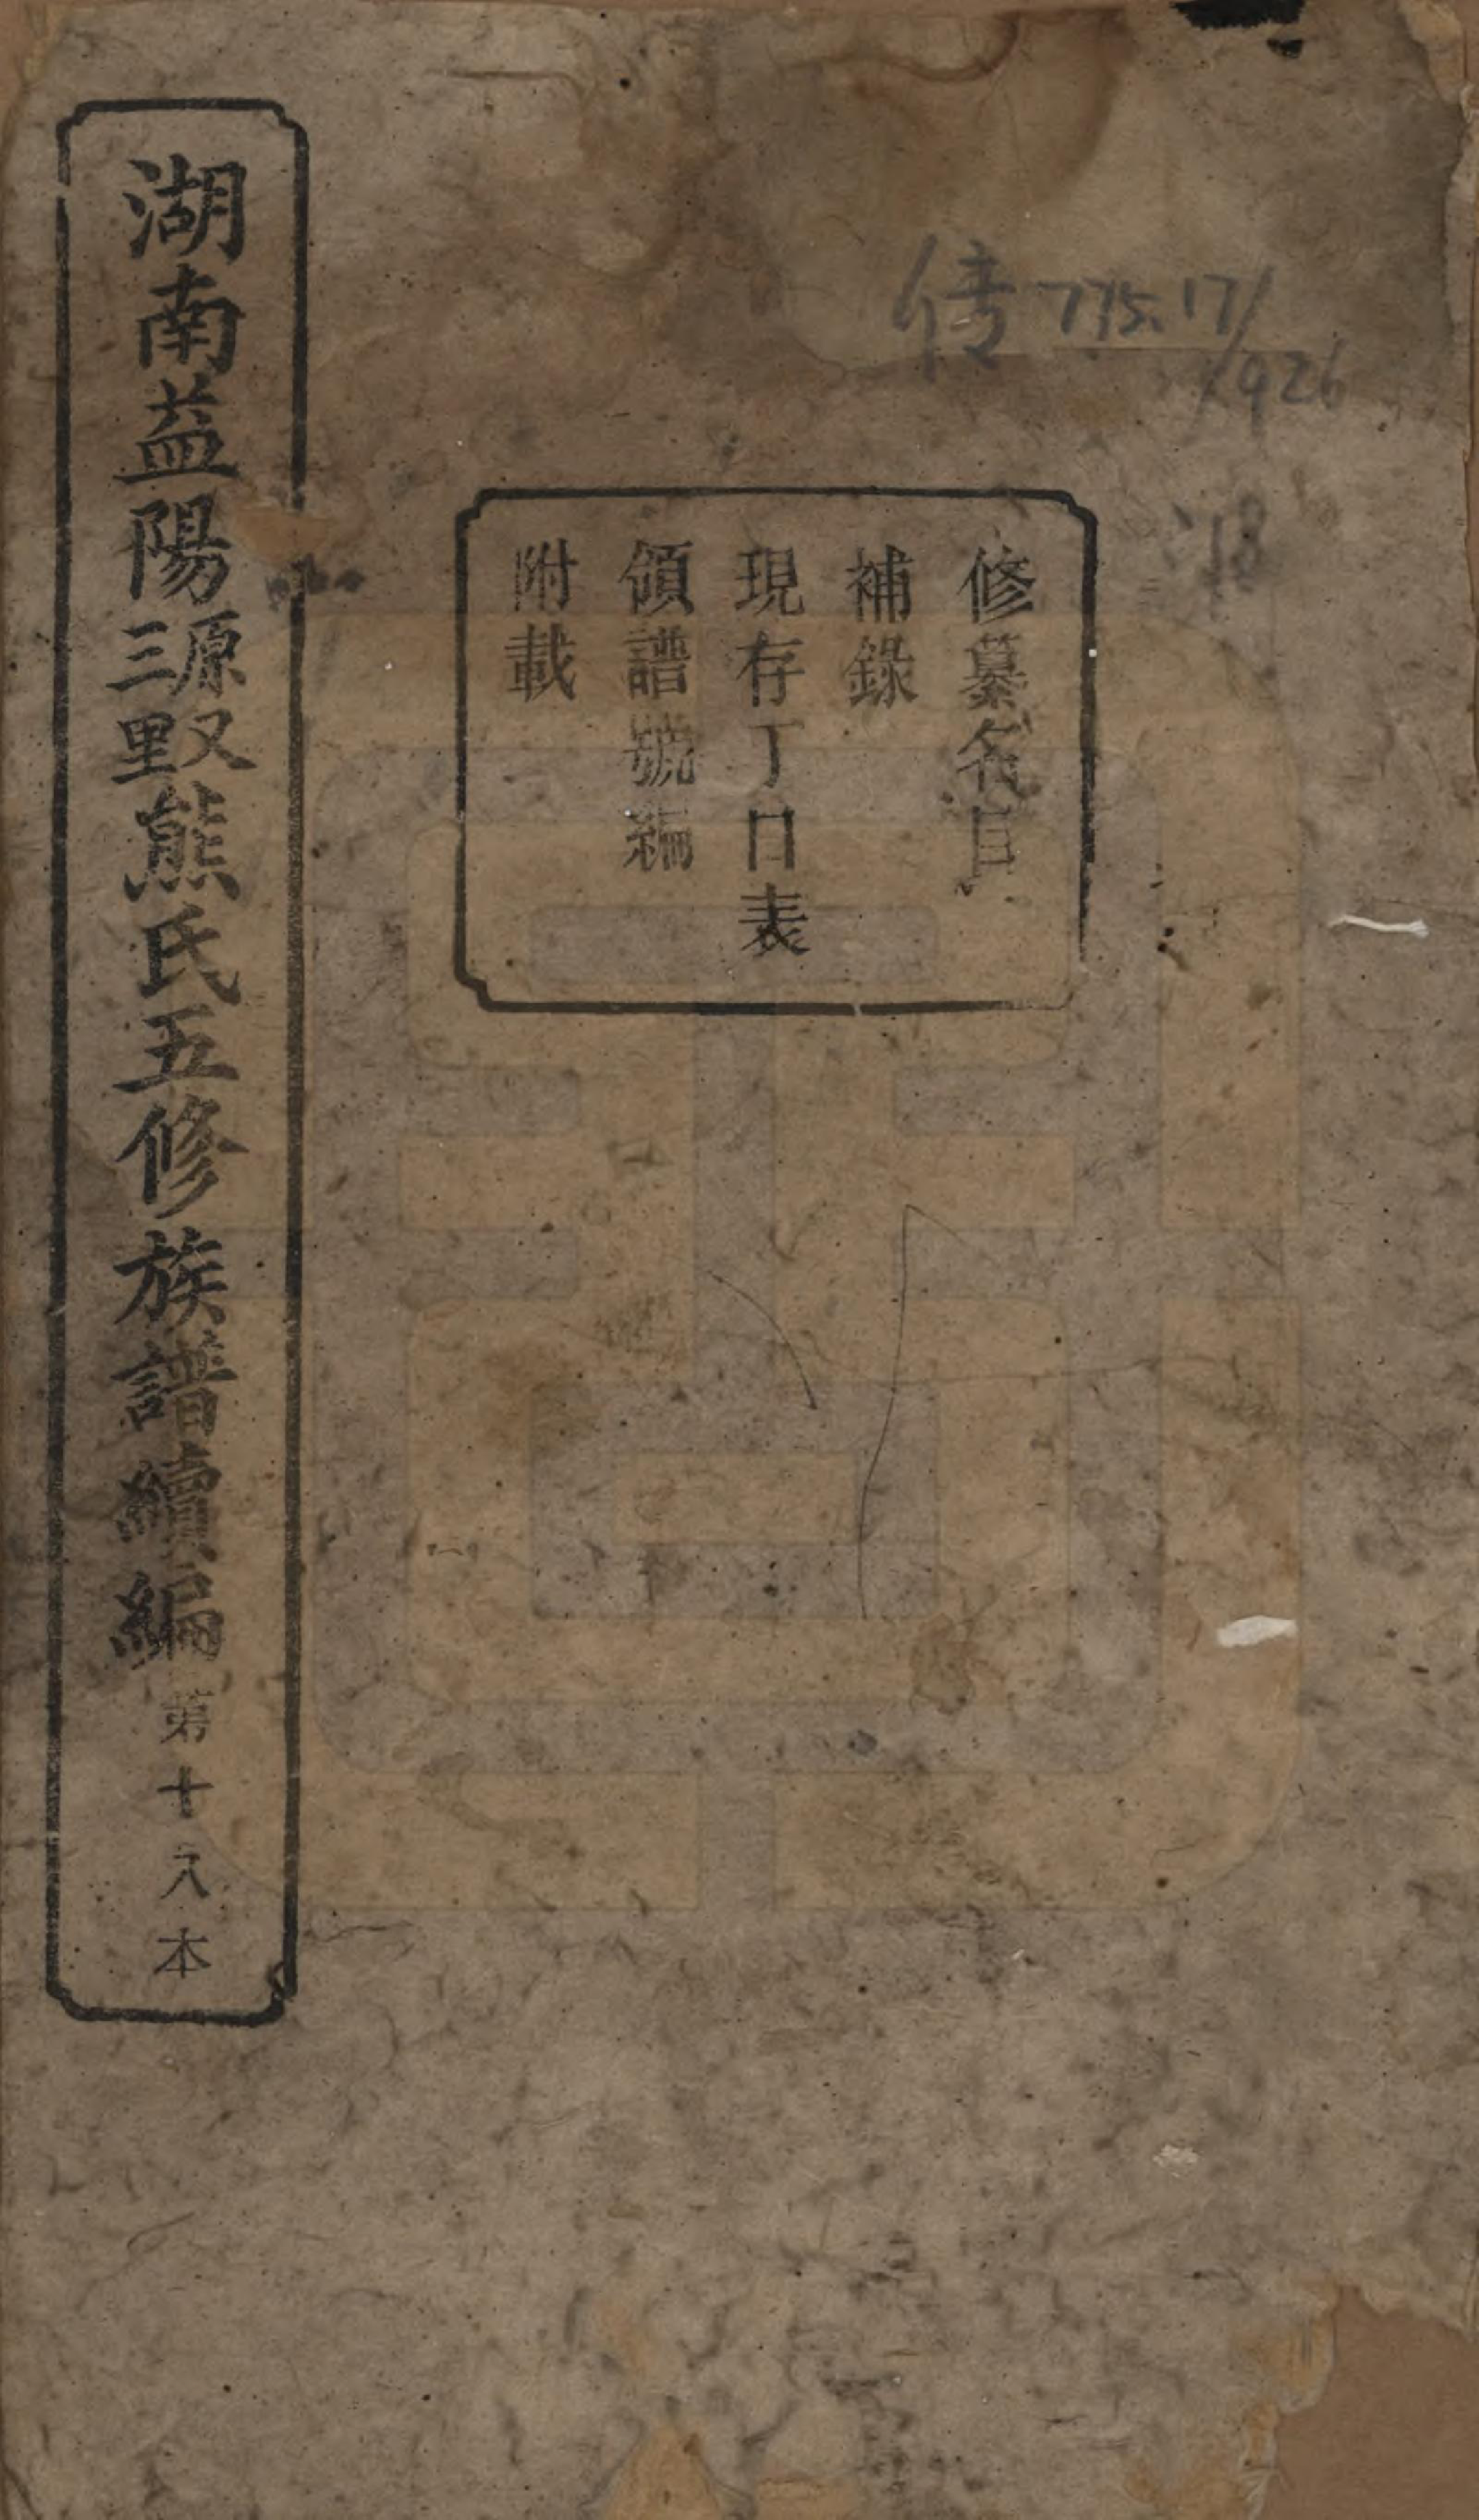 傳 775.17/
926
:18
修纂名目
補錄
現存丁口表
領譜號編
附載
湖南益陽源又三里熊氏五修族譜續編第十八本